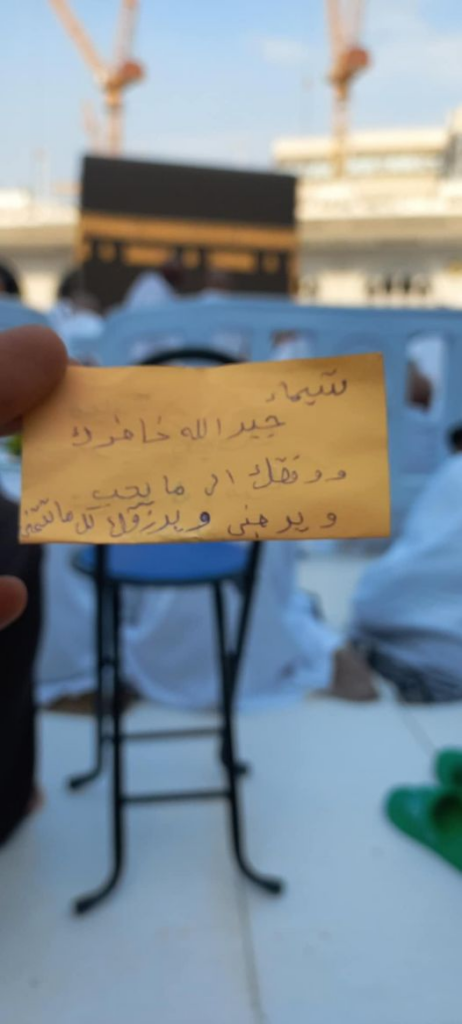 شيماء
جبر الله خاطرك
ووفقك الى ما يحب
ويرضى ويرزقك كل ما تتمني